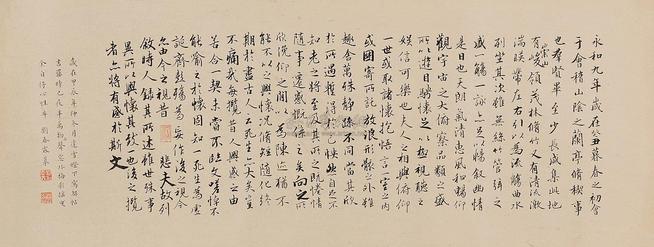 永和九年歲在癸丑暮春之初會
于會稽山陰之蘭亭脩稧事
也羣賢畢至少長咸集此地
有崇山峻領茂林脩竹又有清流激
湍暎帶左右引以為流觴曲水
列坐其次雖無絲竹管弦之
盛一觴一詠亦足以暢敘幽情
是日也天朗氣清惠風和暢仰
觀宇宙之大俯察品類之盛
所以遊目騁懷足以極視聽之
娛信可樂也夫人之相與俯仰
一世或取諸懷抱悟言一室之內
或因寄所託放浪形骸之外雖
趣舍萬殊靜躁不同當其欣
於所遇蹔得於己怏然自足不
知老之將至及其所之既惓情
隨事遷感慨係之矣向之所
欣俛仰之間以為陳迹猶不
能不以之興懷況脩短隨化終
期於盡古人云死生亦大矣豈
不痛哉每攬昔人興感之由
若合一契未嘗不臨文嗟悼不
能喻之於懷固知一死生為虛
誕齊彭殤為妄作後之視今
亦由今之視昔悲夫故列
敘時人錄其所述雖世殊事
異所以興懷其致一也後之攬
者亦將有感於斯文
歲在甲辰年仲冬月